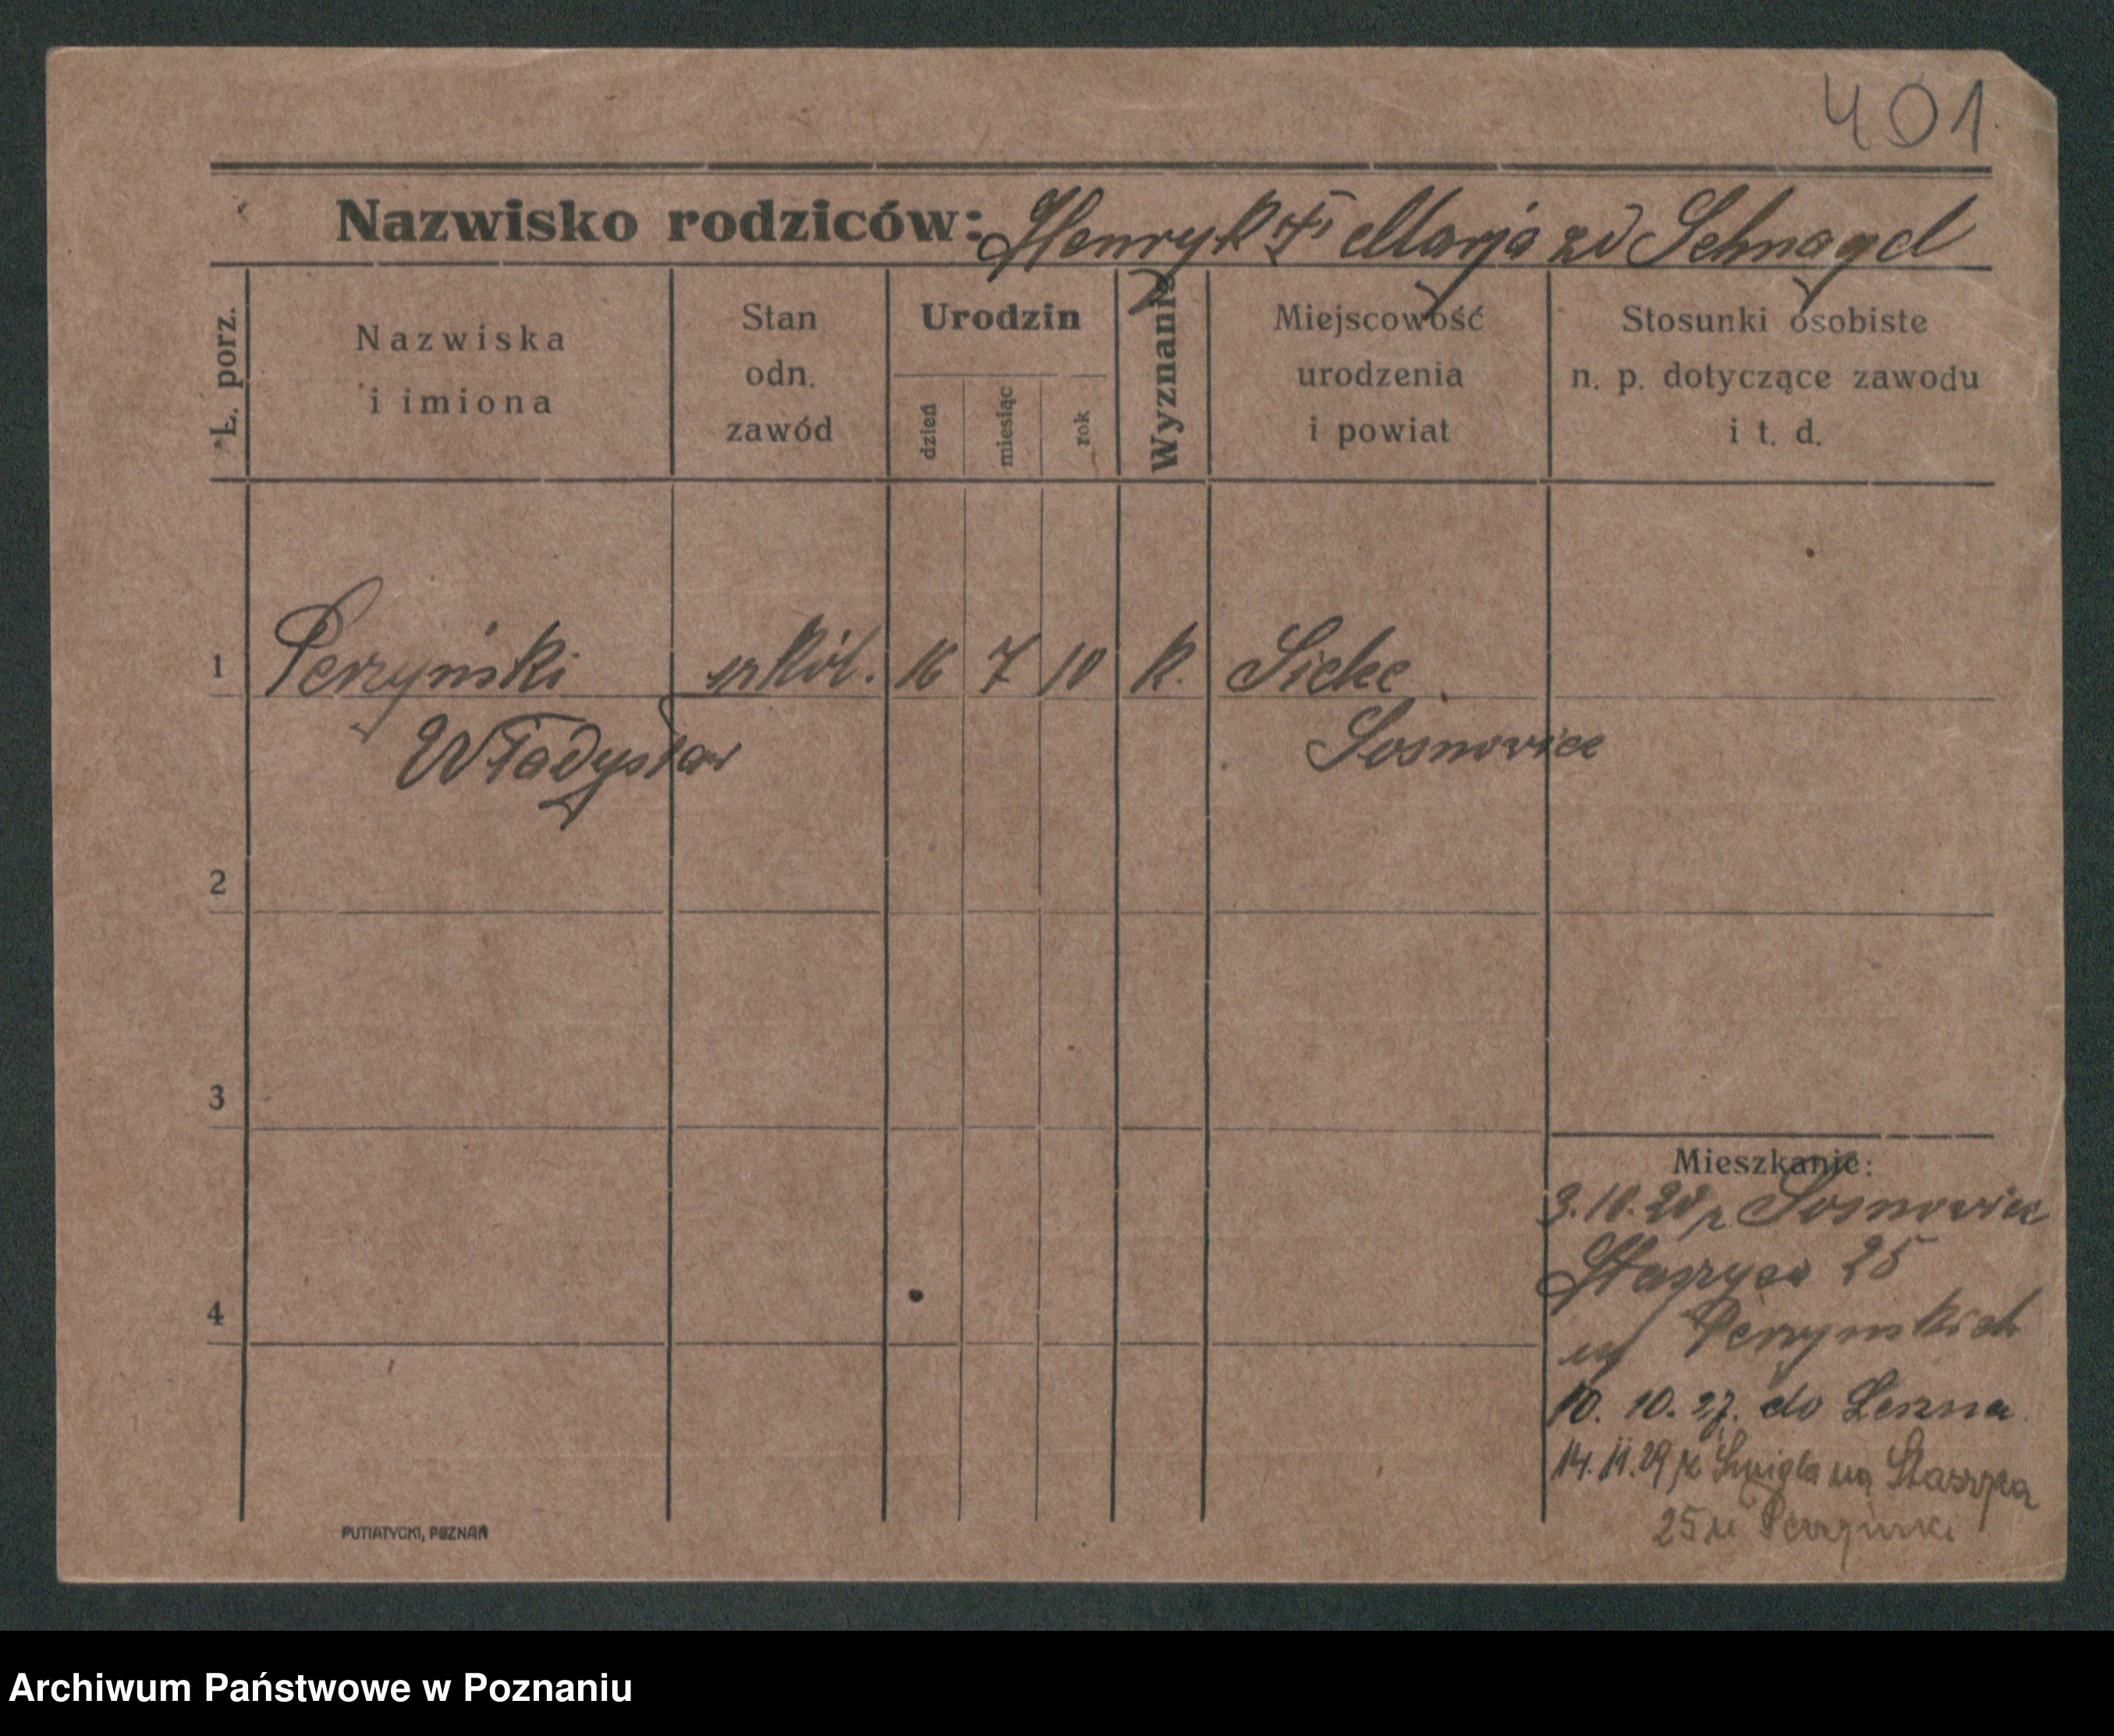 401.
Nazwisko rodziców: Henryk i Marja zd Schnagel
L. porz.
Nazwiska
i imiona
Stan
odn.
zawód
Urodzin
dzień
miesiąc
rok
Wyznanie
Miejscowość
urodzenia
i powiat
Stosunki osobiste
n. p. dotyczące zawodu
i t. d.
1 Perzyński szkół. 16 7 10 k. Sielce
Władysław Sosnowice
2
3
4
Mieszkanie:
3.10. z Sosnowice
Staszyca 25
Perzyńskich
10. 10. 27. do Leszna
14. 11. 29 z Śmigla na Staszyca
25 u Perzyński
PUTIATYCKI, POZNAŃ
Archiwum Państwowe w Poznaniu